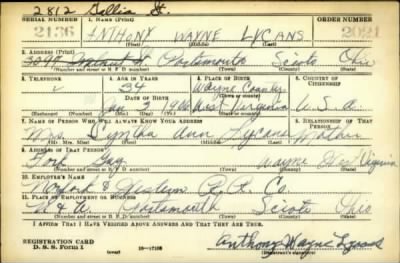 2812 Gallia St.
SERIAL NUMBER 1. NAME (Print)
2136 ANTHONY WAYNE LYCANS 2021
(First) (Middle) (Last)
2. ADDRESS (Print)
Portsmouth Scioto Ohio
(Number and street or R. F. D. number) (Town) (County) (State)
3. TELEPHONE 4. AGE IN YEARS 5. PLACE OF BIRTH 6. COUNTRY OF CITIZENSHIP
34 Wayne County
DATE OF BIRTH
Jan 2 1906 West Virginia U. S. A.
(Exchange) (Number) (Mo.) (Day) (Yr.) (State or country)
7. NAME OF PERSON WHO WILL ALWAYS KNOW YOUR ADDRESS 8. RELATIONSHIP OF THAT PERSON
Mrs. Ann Lycans Mother
(Mr., Mrs., Miss) (First) (Middle) (Last)
9. ADDRESS OF THAT PERSON
Fort Gay Wayne West Virginia
(Number and street or R. F. D. number) (Town) (County) (State)
10. EMPLOYER'S NAME
Norfolk & Western R. R. Co.
11. PLACE OF EMPLOYMENT OR BUSINESS
N & W Portsmouth Scioto Ohio
(Number and street or R. F. D. number) (Town) (County) (State)
I AFFIRM THAT I HAVE VERIFIED ABOVE ANSWERS AND THAT THEY ARE TRUE.
REGISTRATION CARD
D. S. S. Form 1 (over) Anthony Wayne Lycans
(Registrant's signature)